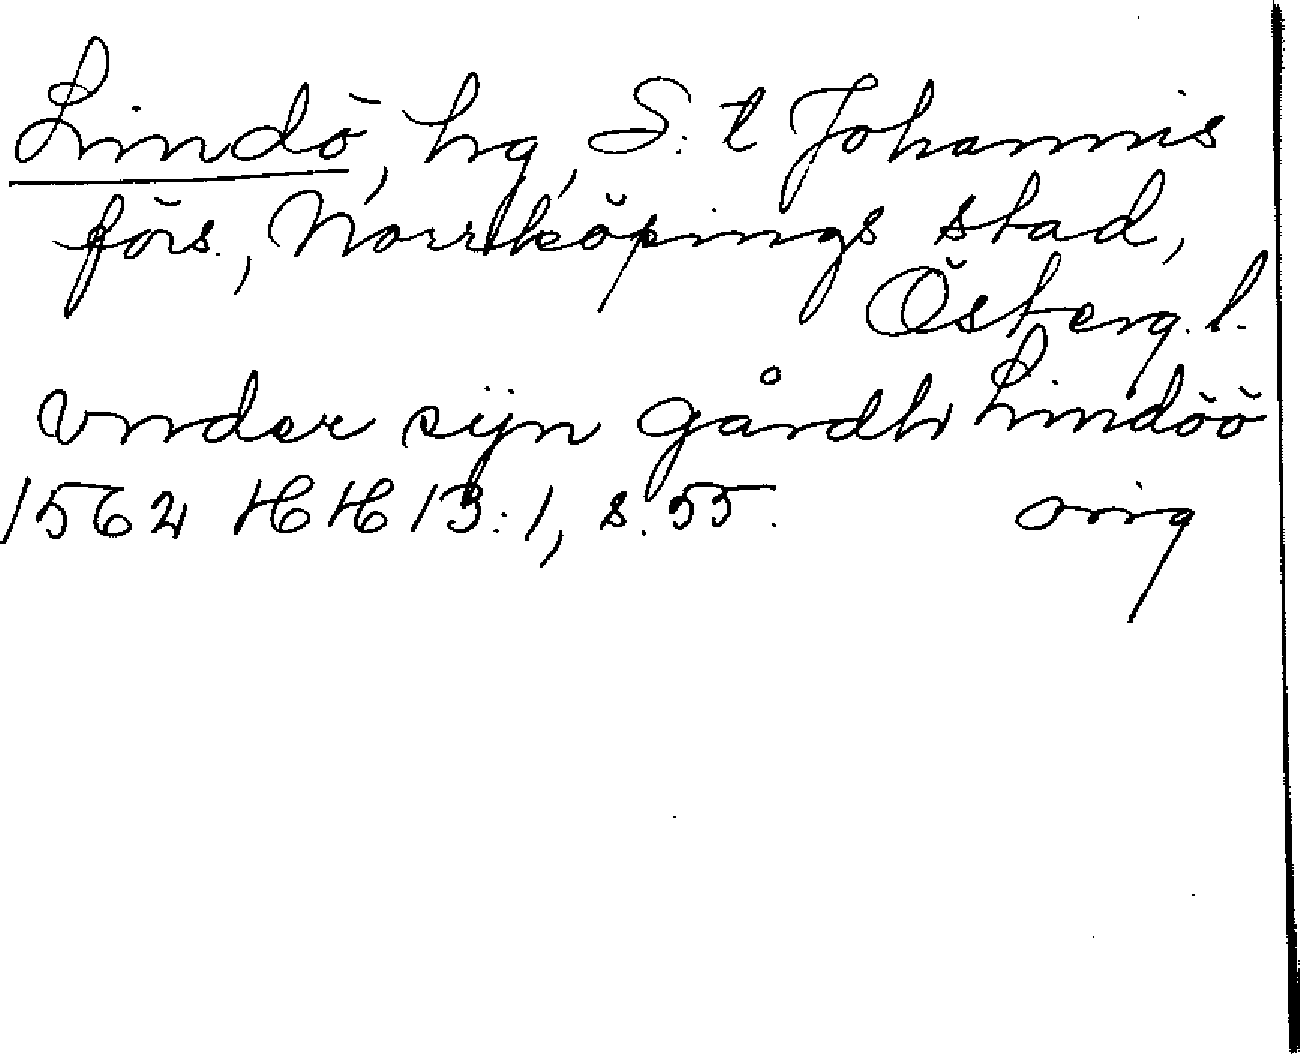 Lindö, hg, S:t Johannis
förs., Norrköpings stad,
Österg. l.
Vnder sijn gårdh Lindöö
1562 HH 13:1, s. 55. orig